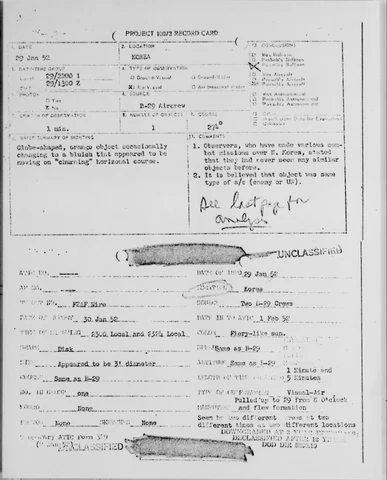 PROJECT 10073 RECORD CARD
1. DATE
29 Jan 52
2. LOCATION
KOREA
12. CONCLUSIONS
3. DATE-TIME GROUP
Local 29/2300 I
GMT 29/1300 Z
4. TYPE OF OBSERVATION
Ground-Visual
Ground-Radar
Air-Visual
Air-Intercept Radar
Was Balloon
Probably Balloon
Possibly Balloon
Was Aircraft
Probably Aircraft
Possibly Aircraft
Was Astronomical
Probably Astronomical
Possibly Astronomical
Other
Unknown
5. PHOTOS
Yes
No
6. SOURCE
B-29 Aircrew
7. LENGTH OF OBSERVATION
1 min.
8. NUMBER OF OBJECTS
1
9. COURSE
10. BRIEF SUMMARY OF SIGHTING
Globe-shaped, orange object occasionally
changing to a bluish that appeared to be
moving on "churning" horizonal course.
11. COMMENTS
1. Observers, who have made various com-
bat missions over N. Korea, stated
that they had never seen any similar
objects before.
2. It is believed that object was same
type of a/c (enemy or US).
See last page for
analysis
UNCLASSIFIED
ATIC NO.
DATE OF INFO 29 Jan 52
AF NO.
LOCATION Korea
REPORT NO. FEAF Wire
SOURCE Two B-29 Crews
DATE OF REPORT 30 Jan 52
DATE IN TO ATIC 1 Feb 52
TIME OF SIGHTING 2300 Local and 2324 Local
COLOR Fiery-like sun.
SHAPE Disk
SPEED Same as B-29
SIZE Appeared to be 3' diameter
ALTITUDE Same as B-29
COURSE Same as B-29
LENGTH OF TIME OBSERVED
1 Minute and
5 Minutes
NO. IN GROUP one
TYPE OF OBSERVATION Visual-Air
SOUND None
Pulled up to 29 from 8 O'clock
MANEUVERS and flew formation
PHOTOS None
SKETCHES None
Seen by two different crews at two
different times at two different locations
Temporary ATIC Form 329
UNCLASSIFIED
DOWNGRADED AT 3 YEAR INTERVALS;
DECLASSIFIED AFTER 12 YEARS
DOD DIR 5200.10